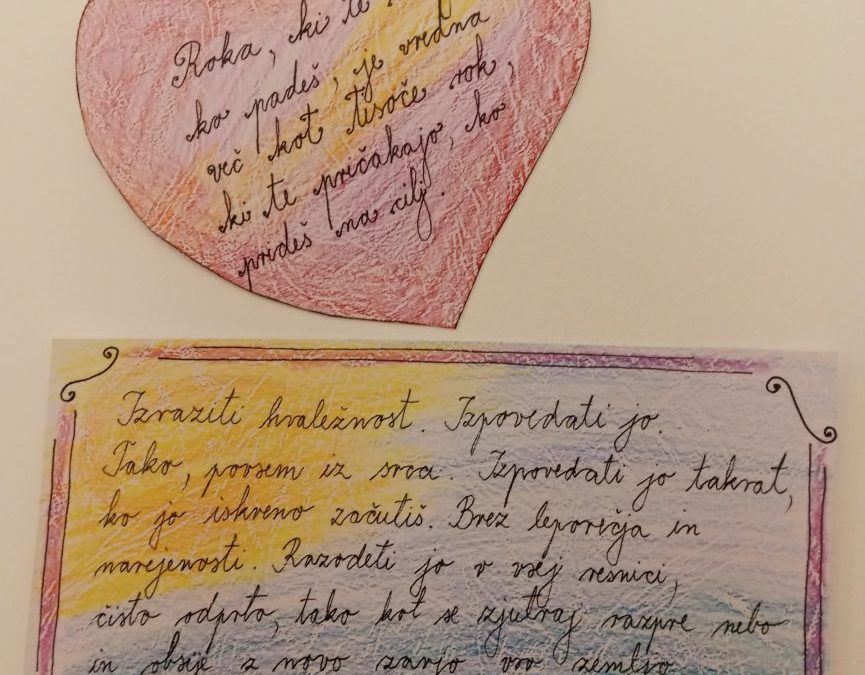 Roka, ki te
ko padeš, je vredna
več kot tisoče rok,
ki te pričakajo, ko
prideš na cilj.
Izraziti hvaležnost. Izpovedati jo.
Tako, povsem iz srca. Izpovedati jo takrat,
ko jo iskreno začutiš. Brez leporečja in
narejenosti. Razodeti jo v vsej resnici,
čisto odprto, tako kot se zjutraj razpre nebo
in obsije z novo zarjo vso zemljo